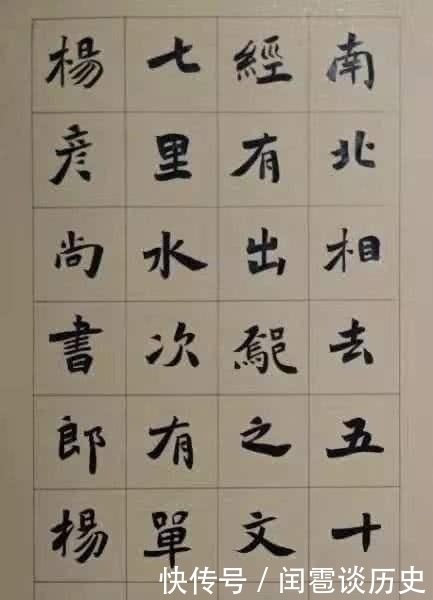 南北相去五十
經有出鄢之文
七里水次有單
楊彥尚書郎楊
快传号 / 闰雹谈历史